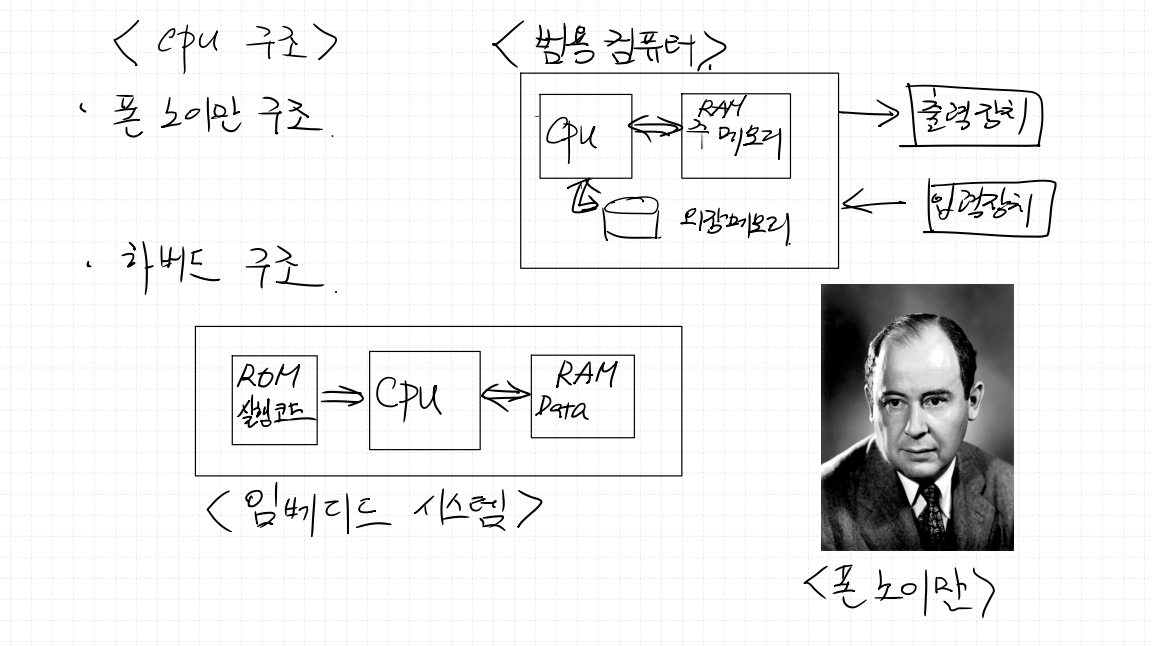 <CPU 구조>
· 폰 노이만 구조.
· 하버드 구조.
<범용 컴퓨터>
CPU
RAM
주 메모리
외장메모리
출력장치
입력장치
ROM
실행코드
CPU
RAM
Data
<임베디드 시스템>
<폰 노이만>